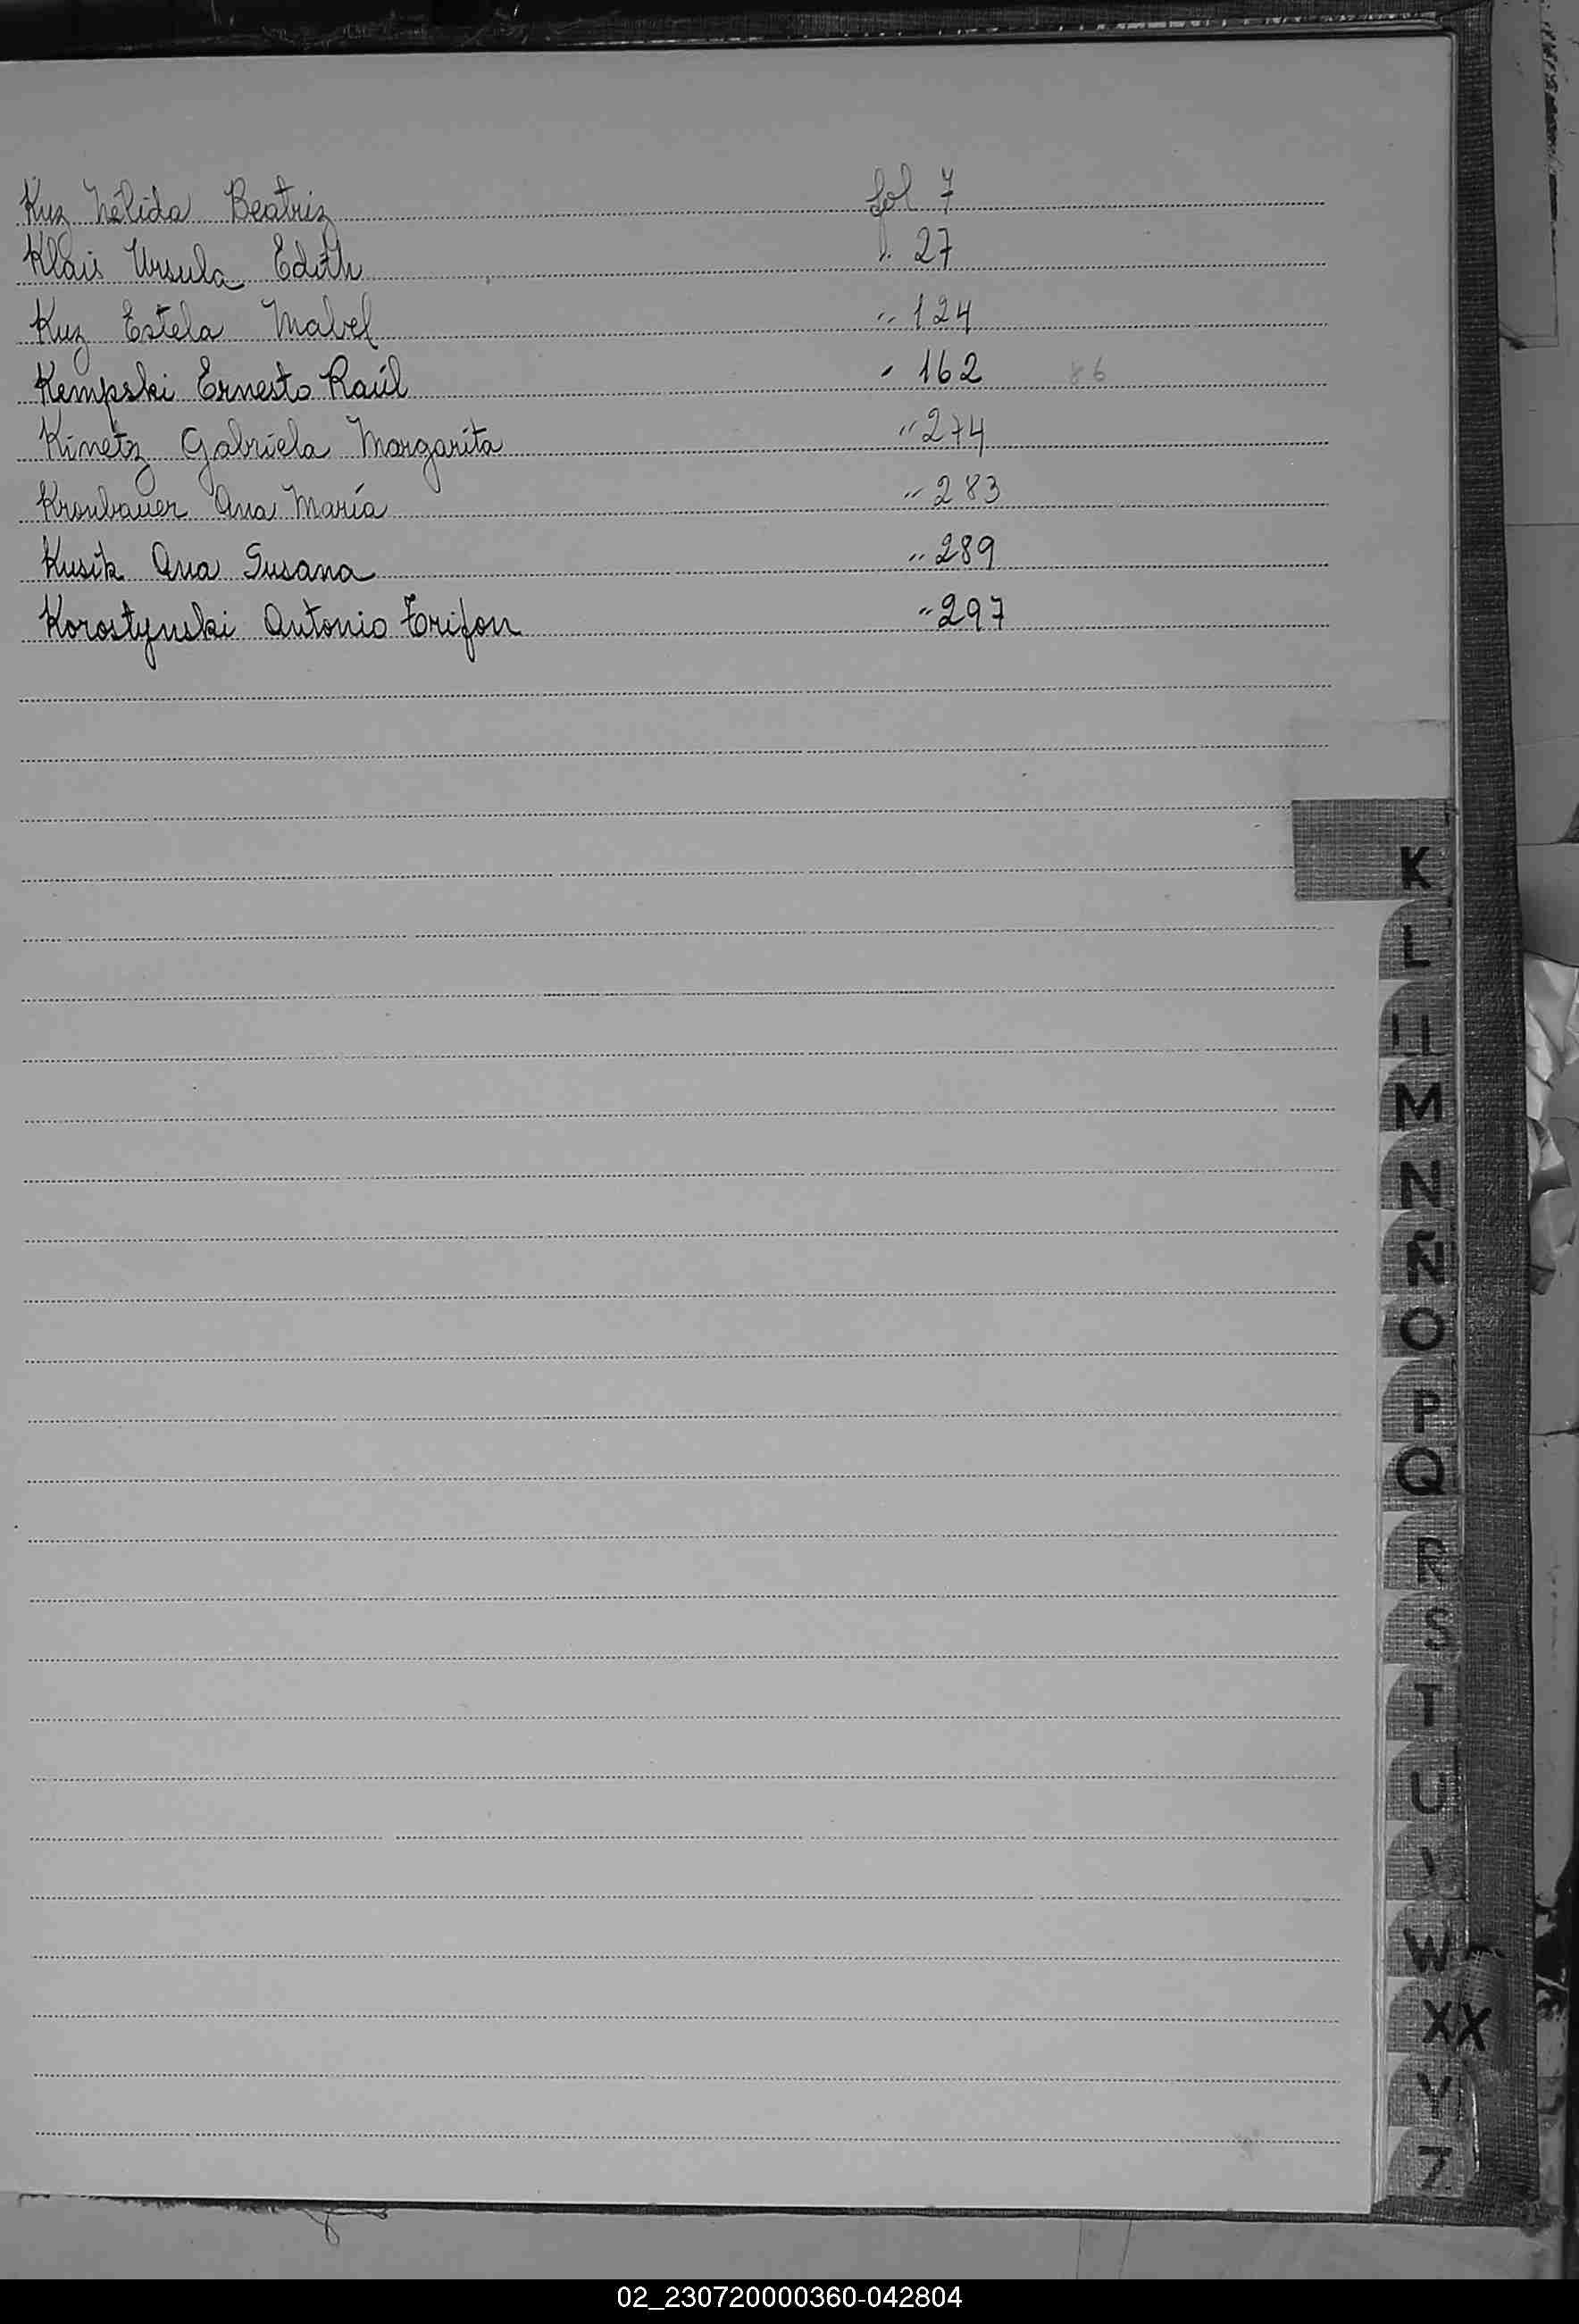 Kuz Nélida Beatriz fol 7
Klais Ursula Edith f. 27
Kuz Estela Mabel " 124
Kempski Ernesto Raúl " 162 86
Kinetz Gabriela Margarita " 274
Kronbauer Ana María " 283
Kusik Ana Susana " 289
Korostynski Antonio Trifon " 297
K
L
LL
M
N
Ñ
O
P
Q
R
S
T
U
W
XX
Y
Z
02_230720000360-042804